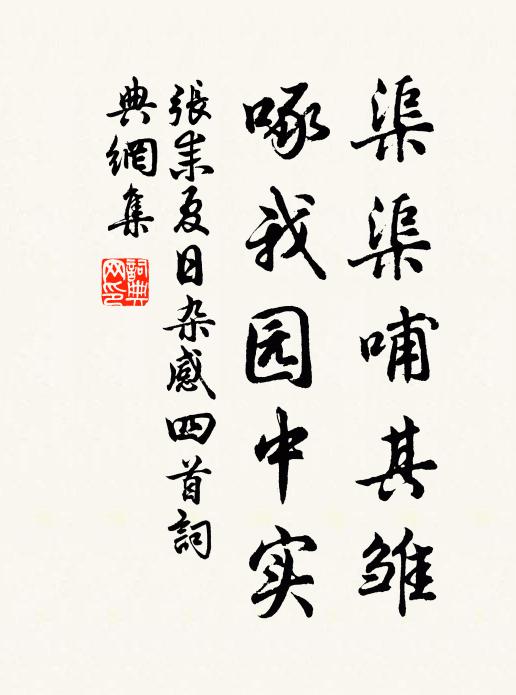 渠渠哺其雏
啄我园中实
張耒夏日杂感四首詞
典網集
詞典网印